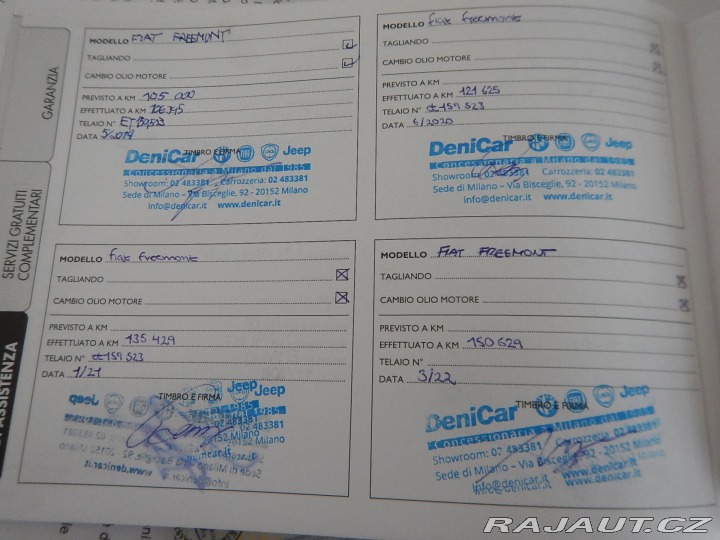 GARANZIA
SERVIZI GRATUITI
COMPLEMENTARI
ASSISTENZA
MODELLO FIAT FREEMONT
TAGLIANDO
CAMBIO OLIO MOTORE
PREVISTO A KM 105 000
EFFETTUATO A KM
TELAIO N°
DATA
TIMBRO E FIRMA
DeniCar Jeep
Concessionaria a Milano dal 1985
Showroom: 02 483381 Carrozzeria: 02 483381
Sede di Milano – Via Bisceglie, 92 - 20152 Milano
info@denicar.it www.denicar.it
MODELLO fiat freemont
TAGLIANDO
CAMBIO OLIO MOTORE
PREVISTO A KM
EFFETTUATO A KM 121 625
TELAIO N° 159 523
DATA 6/2020
TIMBRO E FIRMA
DeniCar Jeep
Concessionaria a Milano dal 1985
Showroom: 02 483381 Carrozzeria: 02 483381
Sede di Milano – Via Bisceglie, 92 - 20152 Milano
info@denicar.it www.denicar.it
MODELLO fiat freemont
TAGLIANDO
CAMBIO OLIO MOTORE
PREVISTO A KM
EFFETTUATO A KM 135 429
TELAIO N° 159 523
DATA 1/21
TIMBRO E FIRMA
Jeep
20152 Milano
MODELLO FIAT FREEMONT
TAGLIANDO
CAMBIO OLIO MOTORE
PREVISTO A KM
EFFETTUATO A KM 150 629
TELAIO N°
DATA 3/22
TIMBRO E FIRMA
DeniCar Jeep
Concessionaria a Milano dal 1985
Showroom: 02 483381 Carrozzeria: 02 483381
Sede di Milano – Via Bisceglie, 92 - 20152 Milano
info@denicar.it www.denicar.it
RAJAUT.CZ